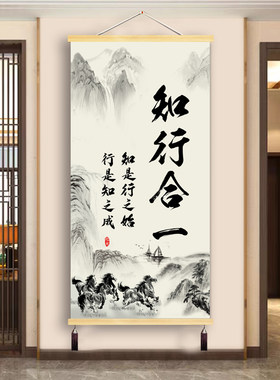 知行合一
知是行之始
行是知之成